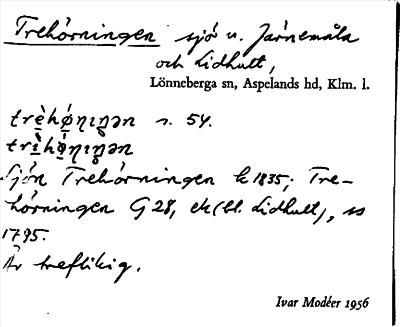 Trehörningen sjö v. Järnemåla
och Lidhult,
Lönneberga sn, Aspelands hd, Klm. l.
s. 54.
Sjön Trehörningen k 1835; Tre-
hörningen G 28, ek (bl. Lidhult), ss
1795.
Är treflikig.
Ivar Modéer 1956